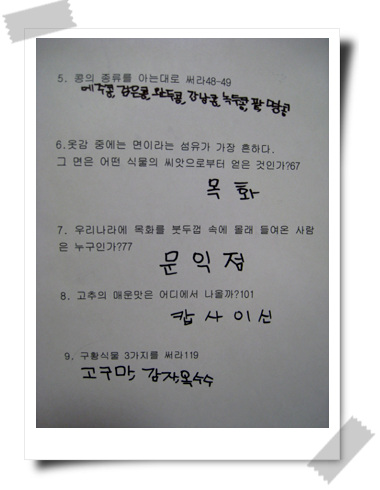 5. 콩의 종류를 아는대로 써라48-49
메주콩, 검은콩, 완두콩, 강남콩, 녹두콩, 팥, 땅콩
6.옷감 중에는 면이라는 섬유가 가장 흔하다.
그 면은 어떤 식물의 씨앗으로부터 얻은 것인가?67
목화
7. 우리나라에 목화를 붓두껍 속에 몰래 들여온 사람
은 누구인가?77
문익점
8. 고추의 매운맛은 어디에서 나올까?101
캅사이신
9. 구황식물 3가지를 써라119
고구마, 감자, 옥수수